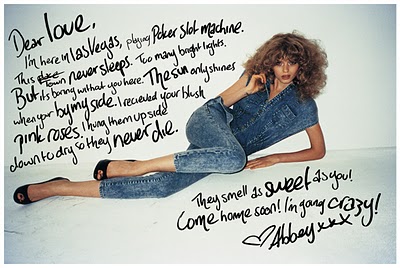 Dear love,
I'm here in Las Vegas, playing Poker Slot machine.
This town never sleeps. Too many bright lights.
But its boring without you here. The sun only shines
when your by my side. I recieved your blush
pink roses. I hung them up side
down to dry so they never die.
They smell as sweet as you!
Come home soon! I'm going crazy!
♡Abbey xxx